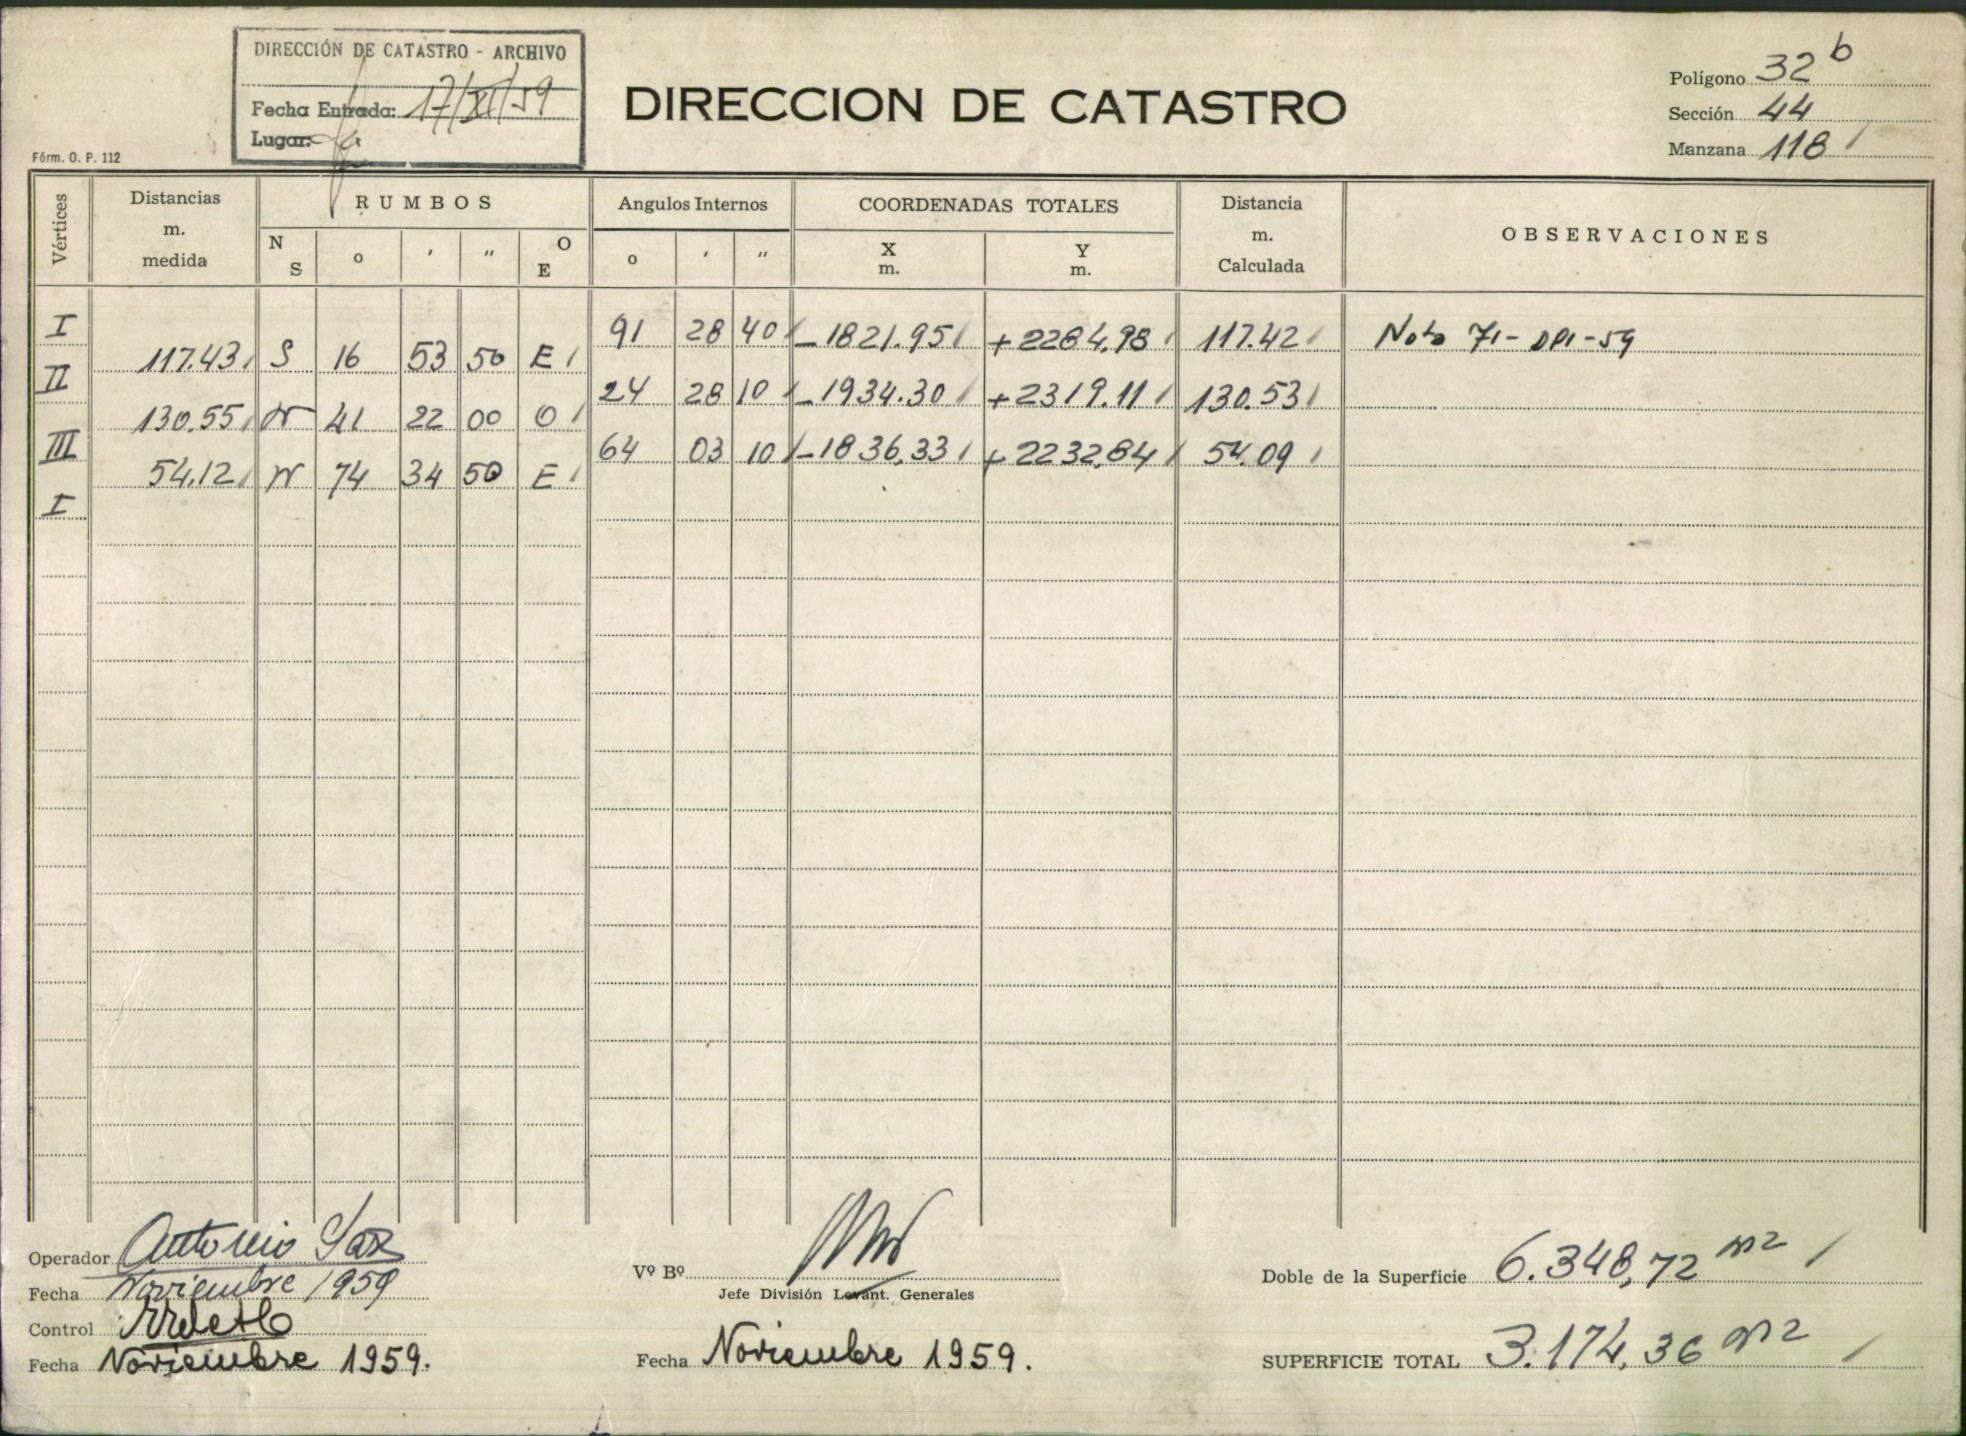 DIRECCIÓN DE CATASTRO - ARCHIVO
Fecha Entrada: 17/XI/59
Lugar:
Fórm. O. P. 112
DIRECCION DE CATASTRO
Polígono 32 b
Sección 44
Manzana 118
Vértices
Distancias
m.
medida
RUMBOS
N S o ' " O E
Angulos Internos
o ' "
COORDENADAS TOTALES
X m. Y m.
Distancia
m.
Calculada
OBSERVACIONES
I 91 28 40 -1821.95 +2284.98 117.42 Nota 71-DPI-59
117.43 S 16 53 50 E
II 24 28 10 -1934.30 +2319.11 130.53
130.55 N 41 22 00 O
III 64 03 10 -1836.33 +2232.84 54.09
54.12 N 74 34 50 E
I
Operador Antonio Saz
Fecha Noviembre 1959
Control
Fecha Noviembre 1959.
Vº Bº
Jefe División Levant. Generales
Fecha Noviembre 1959.
Doble de la Superficie 6.348,72 m2
SUPERFICIE TOTAL 3.174,36 m2